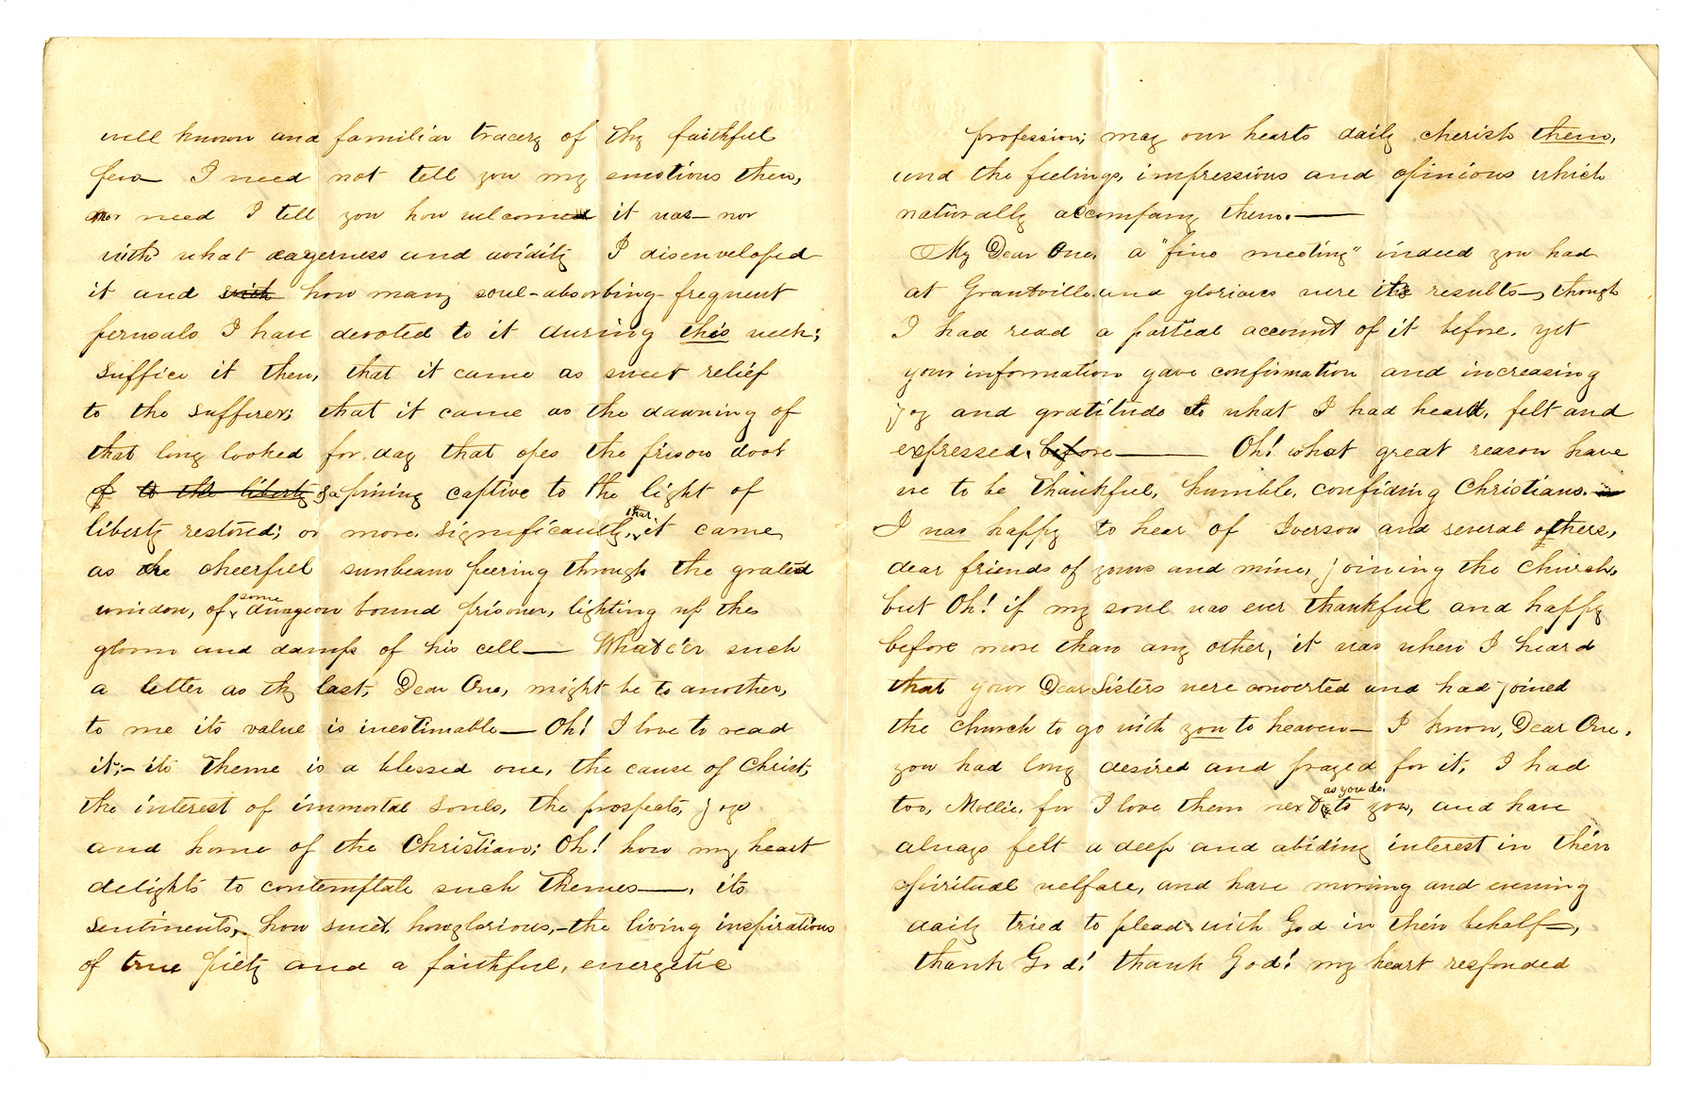 well known and familiar tracery of thy faithful
pen— I need not tell you my emotions then,
nor need I tell you how welcomed it was— nor
with what eagerness and avidity I disenveloped
it and with how many soul-absorbing-frequent
perusals I have devoted to it during this week;
suffice it then, that it came as sweet relief
to the sufferer; that it came as the dawning of
that long looked for day that opes the prison door
of to the liberty a pining captive to the light of
liberty restored; or more significantly, that it came
as the cheerful sunbeam peering through the grated
window, of some dungeon bound prisoner, lighting up the
gloom and damps of his cell— Whate'er such
a letter as thy last, Dear One, might be to another,
to me its value is inestimable— Oh! I love to read
it;- its theme is a blessed one, the cause of Christ,
the interest of immortal souls, the prospects, joys
and home of the Christian; Oh! how my heart
delights to contemplate such themes—, its
sentiments, how sweet, how glorious,-the living inspirations
of true piety and a faithful, energetic
profession; may our hearts daily cherish them,
and the feelings, impressions and opinions which
naturally accompany them.—
My Dear One, a "fine meeting" indeed you had
at Grantville and glorious were its results—, though
I had read a partial account of it before, yet
your information gave confirmation and increasing
joy and gratitude to what I had heard, felt and
expressed, before— Oh! what great reason have
we to be thankful, humble, confiding Christians.
I was happy to hear of Iverson and several others,
dear friends of yours and mine, joining the Church,
but Oh! if my soul was ever thankful and happy
before more than any other, it was when I heard
that your Dear Sisters were converted and had joined
the Church to go with you to heaven— I know, Dear One,
you had long desired and prayed for it, I had
too, Mollie, for I love them next to you, as you do, and have
always felt a deep and abiding interest in their
spiritual welfare, and have morning and evening
daily tried to plead with God in their behalf—,
thank God! thank God! my heart responded